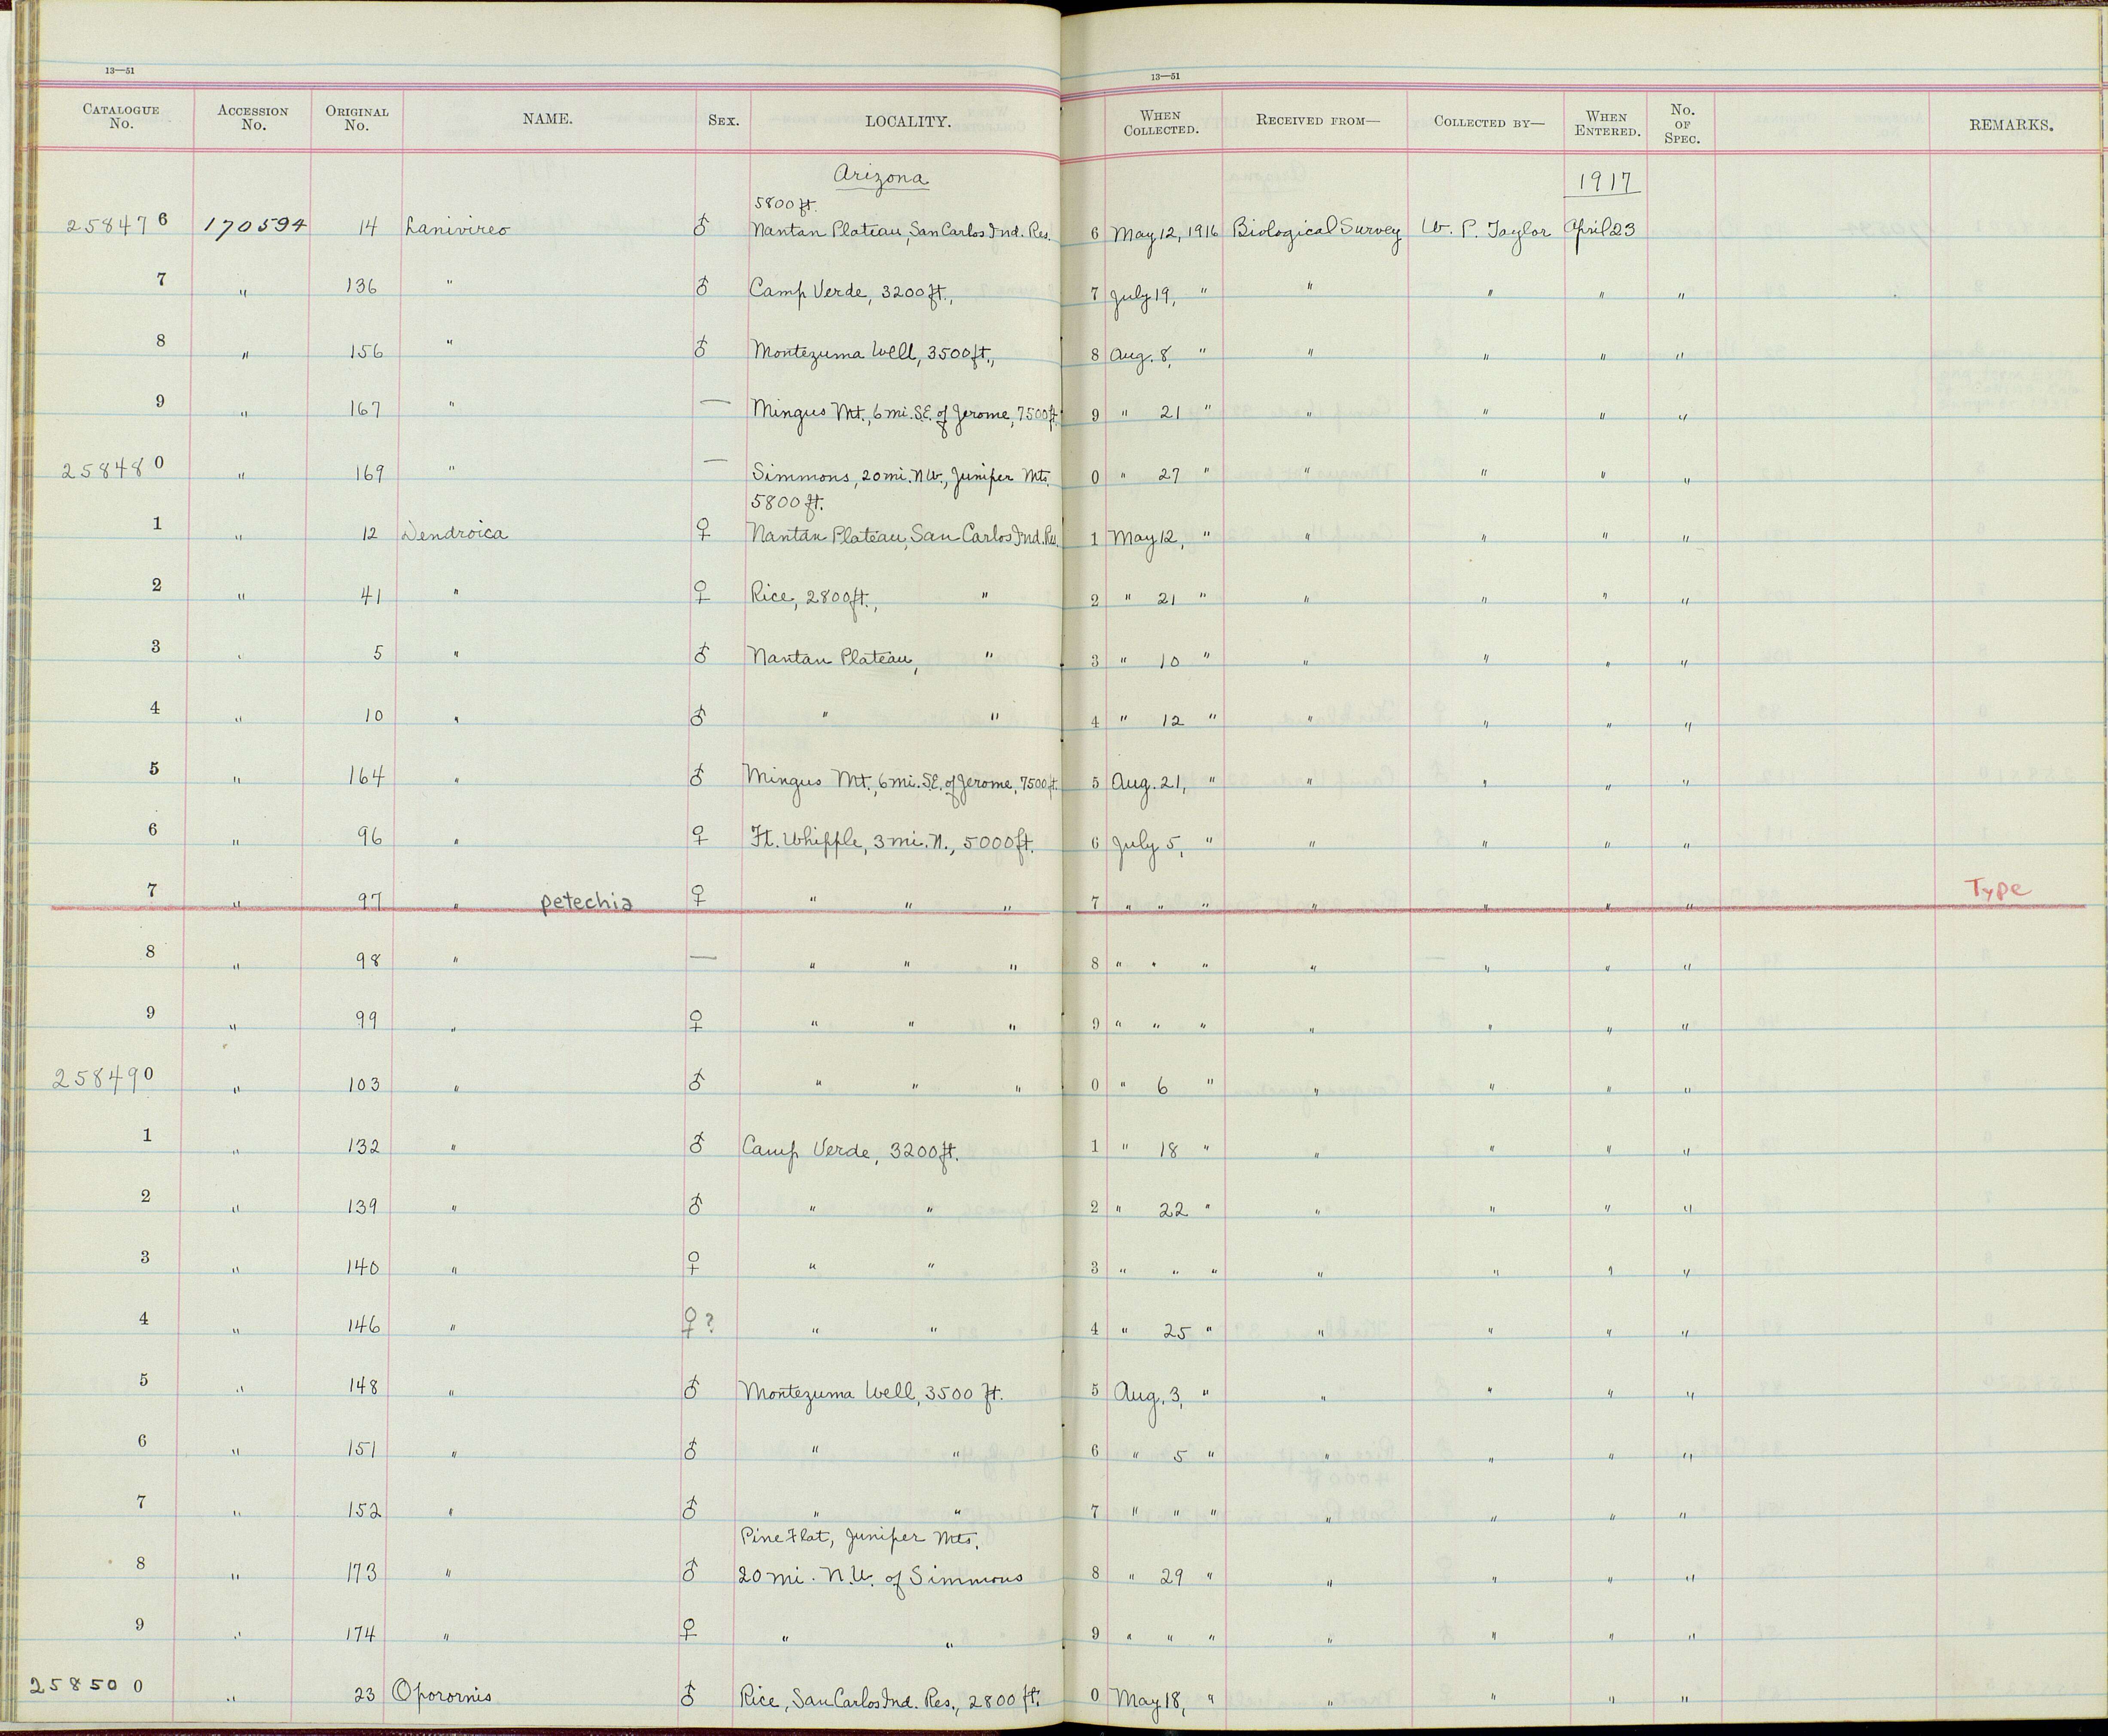 13—51 13—51
CATALOGUE No. ACCESSION No. ORIGINAL No. NAME. SEX. LOCALITY. WHEN COLLECTED. RECEIVED FROM— COLLECTED BY— WHEN ENTERED. No. OF SPEC. REMARKS.
Arizona 1917
5800 ft.
258476 170594 14 Lanivireo ♂ Nantan Plateau, San Carlos Ind. Res. 6 May 12, 1916 Biological Survey W. P. Taylor April 23
7 " 136 " ♂ Camp Verde, 3200 ft., 7 July 19, " " " " "
8 " 156 " ♂ Montezuma Well, 3500 ft., 8 Aug. 8, " " " " "
9 " 167 " — Mingus Mt., 6 mi. S.E. of Jerome, 7500 ft. 9 " 21 " " " " "
258480 " 169 " — Simmons, 20 mi. N.W., Juniper Mts. 0 " 27 " " " " "
5800 ft.
1 " 12 Dendroica ♀ Nantan Plateau, San Carlos Ind. Res. 1 May 12, " " " " "
2 " 41 " ♀ Rice, 2800 ft., " 2 " 21 " " " " "
3 " 5 " ♂ Nantan Plateau, " 3 " 10 " " " " "
4 " 10 " ♂ " " 4 " 12 " " " " "
5 " 164 " ♂ Mingus Mt., 6 mi. S.E. of Jerome, 7500 ft. 5 Aug. 21, " " " " "
6 " 96 " ♀ Ft. Whipple, 3 mi. N., 5000 ft. 6 July 5, " " " " "
7 " 97 " petechia ♀ " " " 7 " " " " " " " Type
8 " 98 " — " " " 8 " " " " " " "
9 " 99 " ♀ " " " 9 " " " " " " "
258490 " 103 " ♂ " " " 0 " 6 " " " " "
1 " 132 " ♂ Camp Verde, 3200 ft. 1 " 18 " " " " "
2 " 139 " ♂ " " 2 " 22 " " " " "
3 " 140 " ♀ " " 3 " " " " " " "
4 " 146 " ♀? " " 4 " 25 " " " " "
5 " 148 " ♂ Montezuma Well, 3500 ft. 5 Aug. 3, " " " " "
6 " 151 " ♂ " " 6 " 5 " " " " "
7 " 152 " ♂ " " 7 " " " " " " "
Pine Flat, Juniper Mts.
8 " 173 " ♂ 20 mi. N.W. of Simmons 8 " 29 " " " " "
9 " 174 " ♀ " " 9 " " " " " " "
258500 " 23 Oporornis ♂ Rice, San Carlos Ind. Res., 2800 ft. 0 May 18, " " " " "